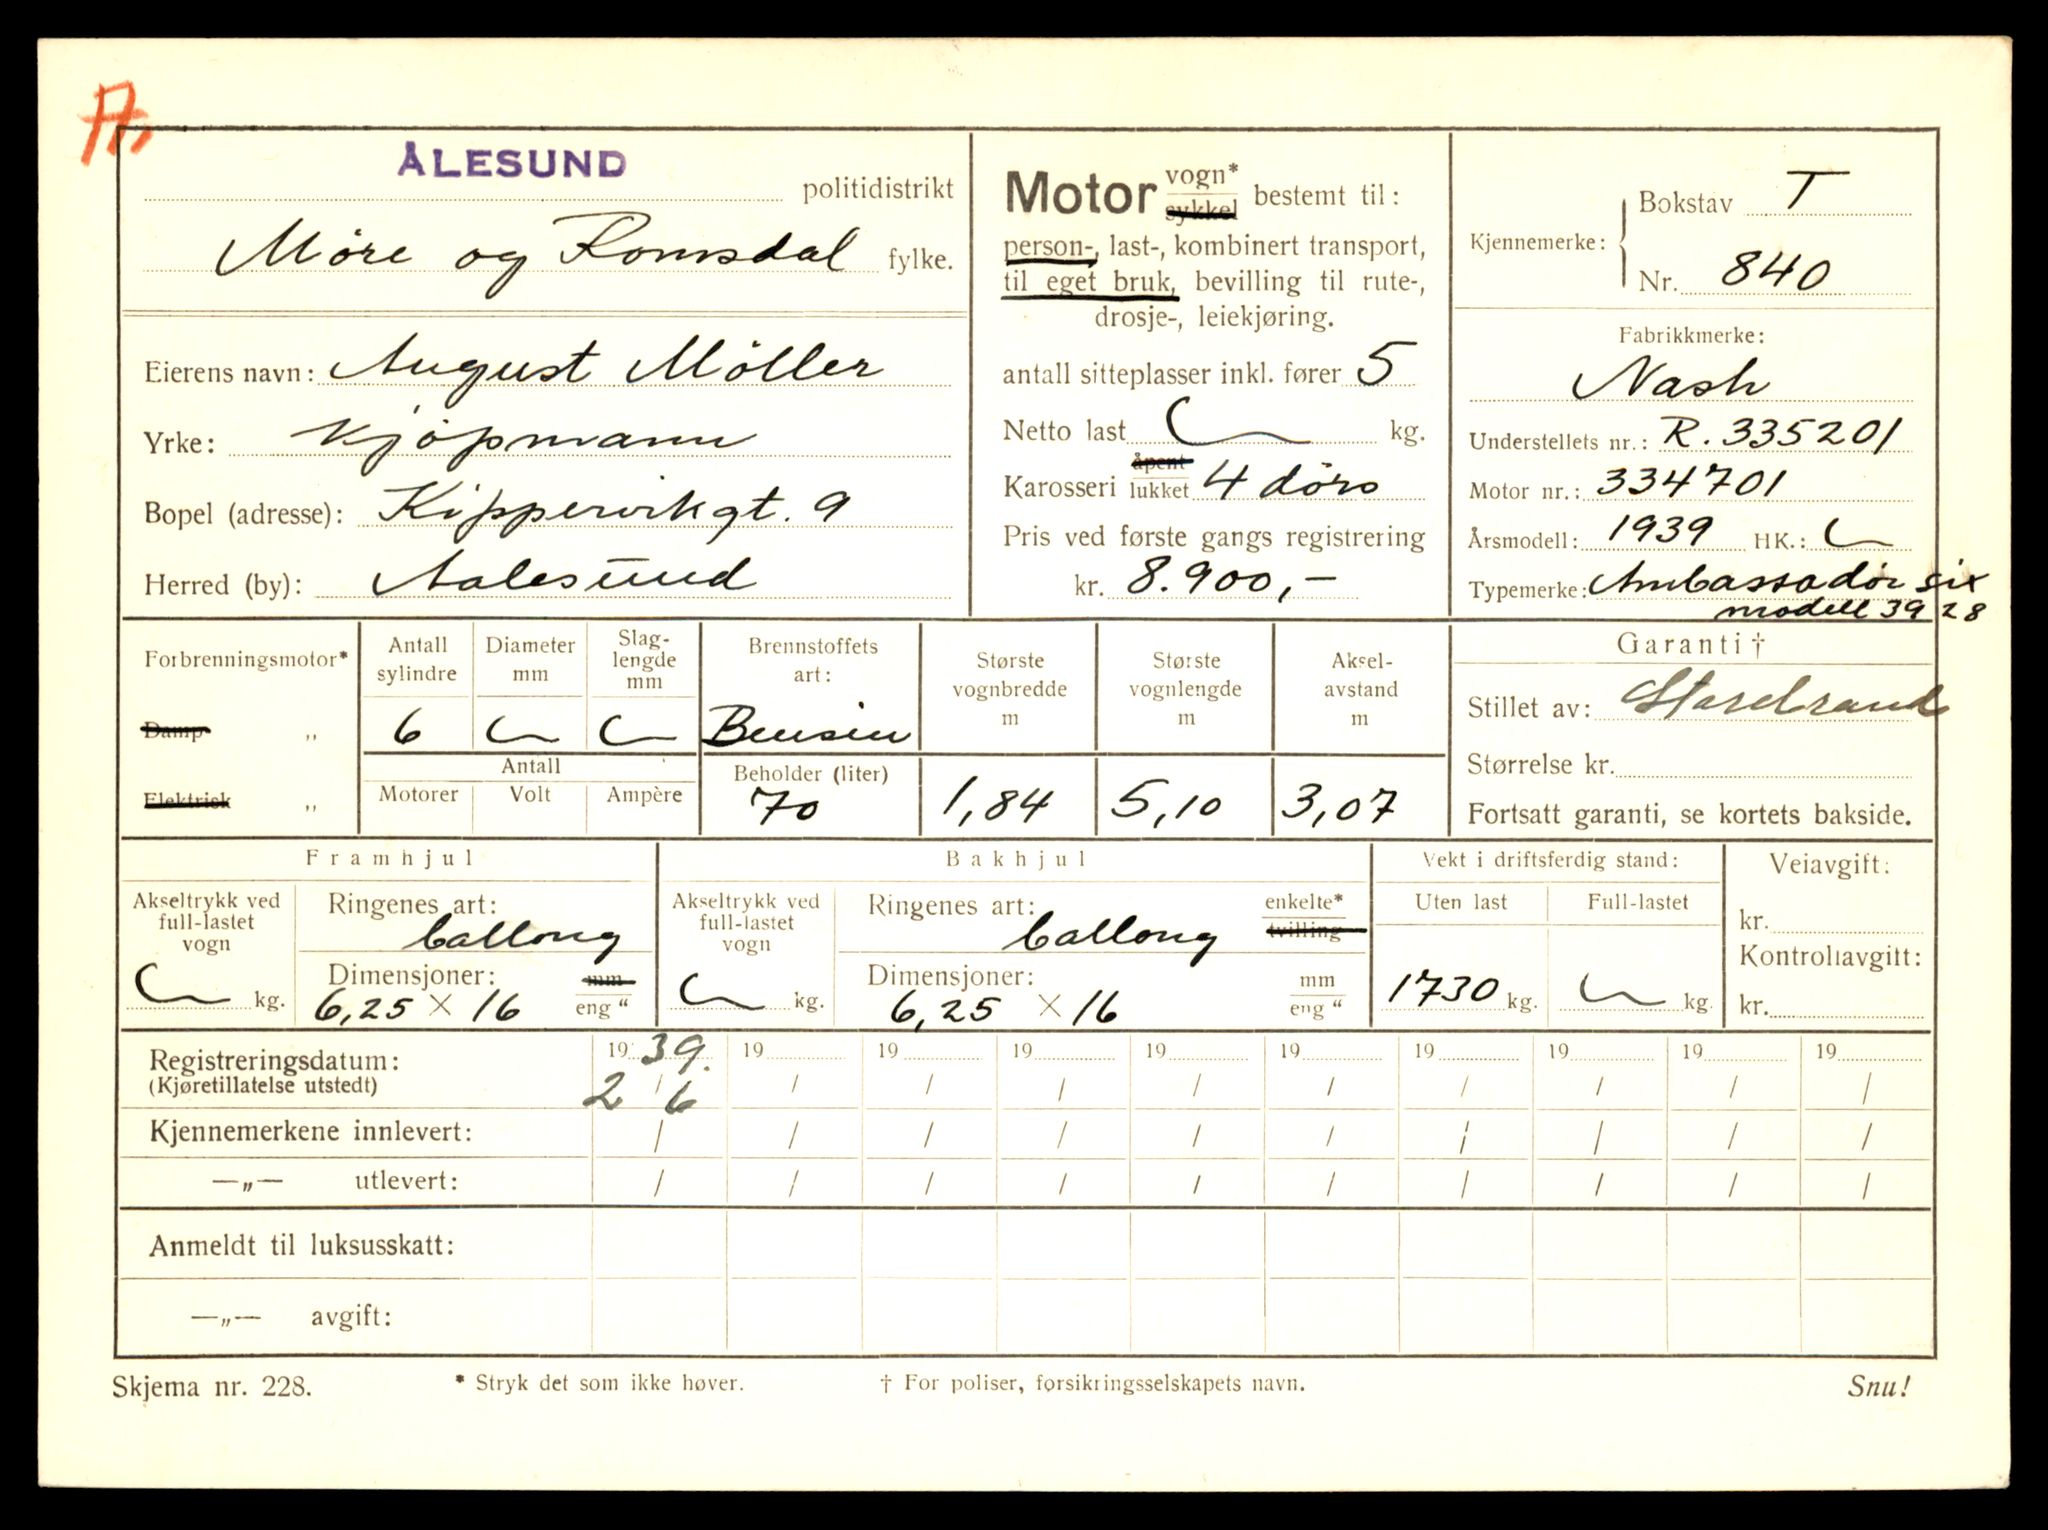 A.
ÅLESUND politidistrikt
Møre og Romsdal fylke.
Eierens navn: August Möller
Yrke: Kjöpmann
Bopel (adresse): Kippervikgt. 9
Herred (by): Aalesund
Motor vogn* sykkel bestemt til:
person-, last-, kombinert transport,
til eget bruk, bevilling til rute-,
drosje-, leiekjøring.
antall sitteplasser inkl. fører 5
Netto last kg.
Karosseri åpent lukket 4 dörs
Pris ved første gangs registrering
kr. 8.900,-
Kjennemerke: Bokstav T
Nr. 840
Fabrikkmerke:
Nash
Understellets nr.: R. 335201
Motor nr.: 334701
Årsmodell: 1939 HK.:
Typemerke: Ambassadör six
modell 3928
Forbrenningsmotor*
Damp „
Elektrisk „
Antall sylindre
6
Diameter mm
Slag-
lengde
mm
Antall
Motorer Volt Ampère
Brennstoffets
art:
Bensin
Beholder (liter)
70
Største
vognbredde
m
1,84
Største
vognlengde
m
5,10
Aksel-
avstand
m
3,07
Garanti †
Stillet av: Storebrand
Størrelse kr.
Fortsatt garanti, se kortets bakside.
Framhjul
Akseltrykk ved
full-lastet
vogn
kg.
Ringenes art:
ballong
Dimensjoner: mm
6,25 × 16 eng "
Bakhjul
Akseltrykk ved
full-lastet
vogn
kg.
Ringenes art: enkelte*
ballong tvilling
Dimensjoner: mm
6,25 × 16 eng "
Vekt i driftsferdig stand:
Uten last Full-lastet
1730 kg. kg.
Veiavgift:
kr.
Kontrollavgift:
kr.
Registreringsdatum: 1939. 19 19 19 19 19 19 19 19 19
(Kjøretillatelse utstedt) 2 / 6 / / / / / / / / /
Kjennemerkene innlevert: / / / / / / / / / /
—„— utlevert: / / / / / / / / / /
Anmeldt til luksusskatt:
—„— avgift:
Skjema nr. 228. * Stryk det som ikke høver. † For poliser, forsikringsselskapets navn. Snu!